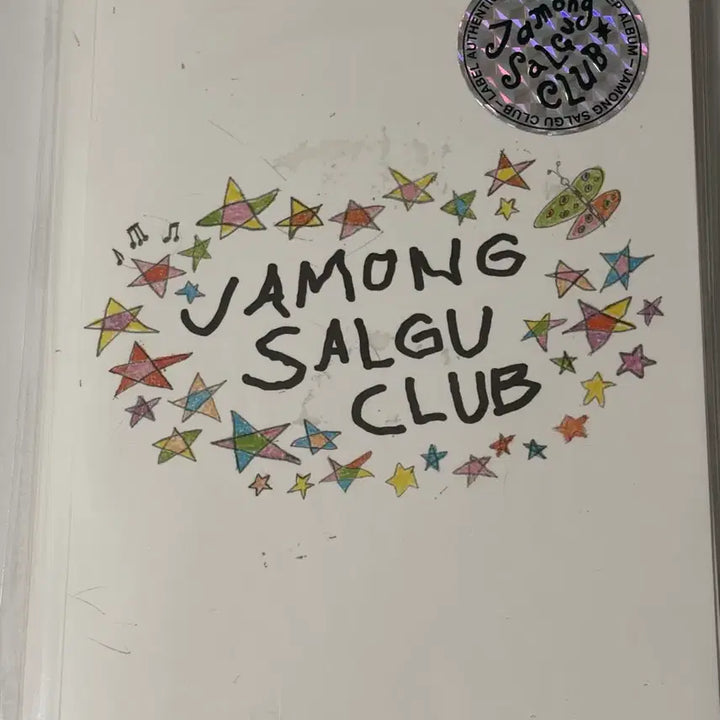 Jamong
SaLGu
CLUB
LABEL AUTHENTI
EP ALBUM – JAMONG SALGU CLUB –
JAMONG
SALGU
CLUB